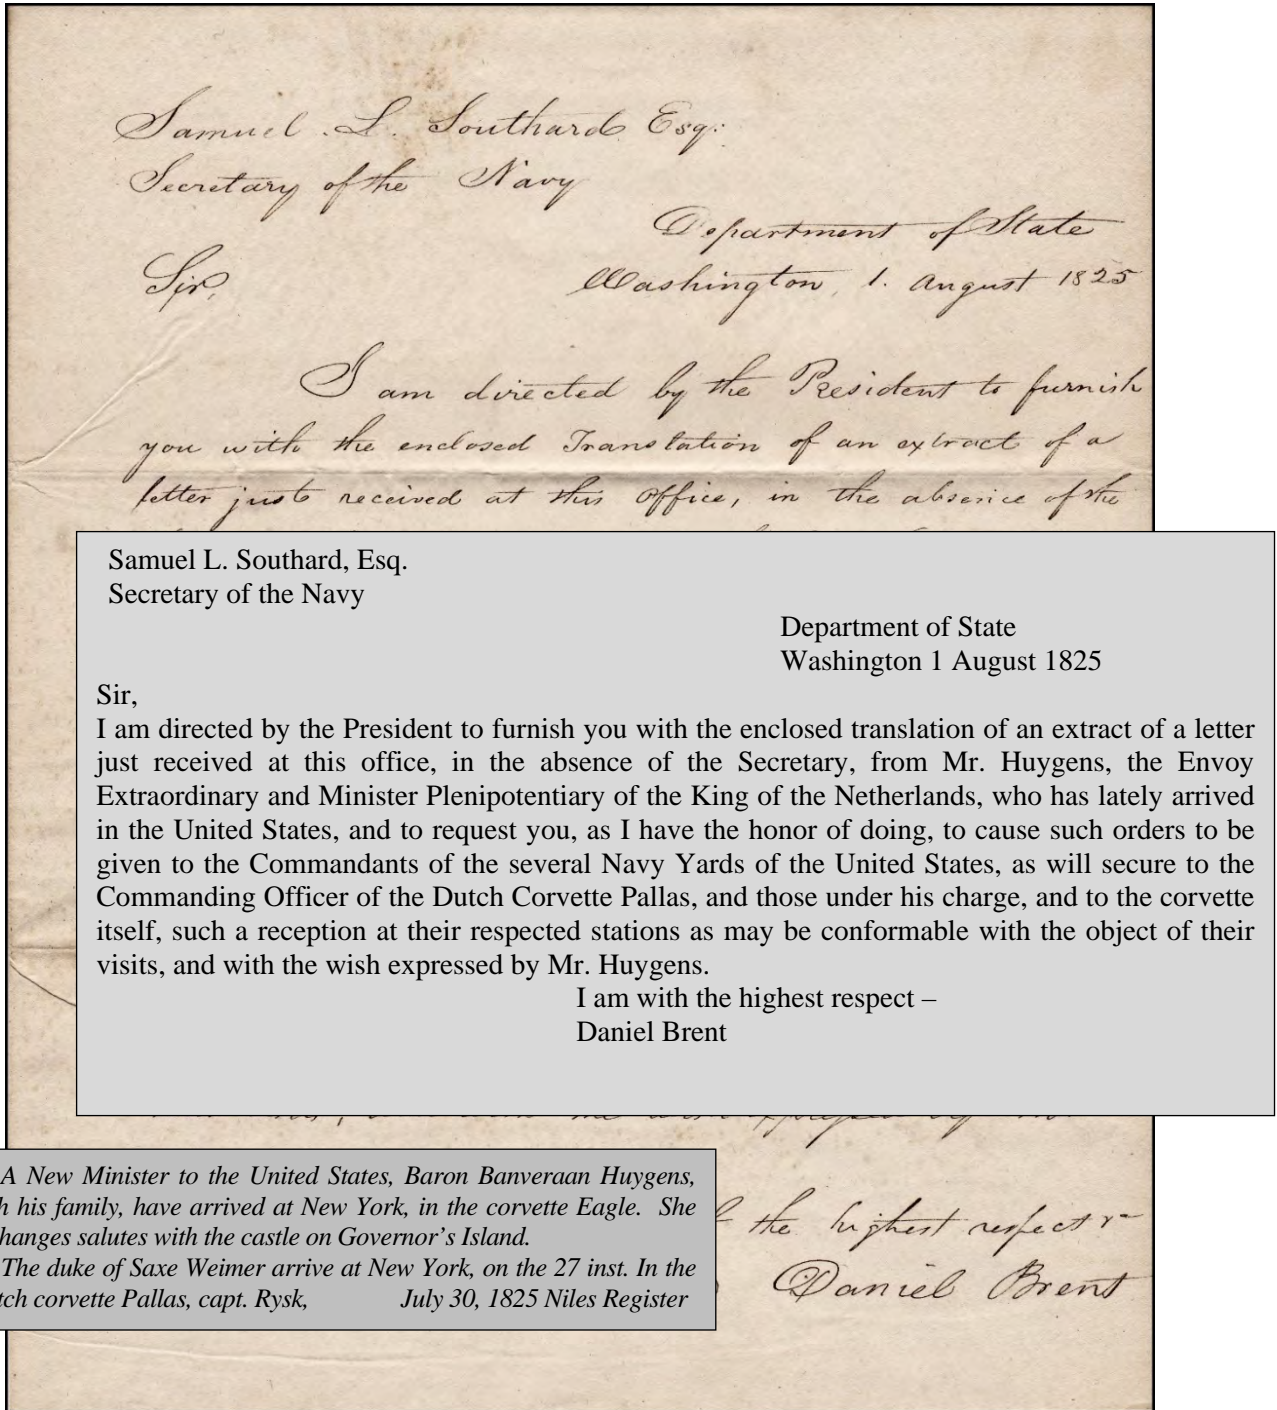 Samuel . L. Southard Esq:
Secretary of the Navy
Department of State
Sir,
Washington, 1. August 1825
I am directed by the President to furnish
you with the enclosed Translation of an extract of a
letter just received at this office, in the absence of the
Samuel L. Southard, Esq.
Secretary of the Navy
Department of State
Washington 1 August 1825
Sir,
I am directed by the President to furnish you with the enclosed translation of an extract of a letter
just received at this office, in the absence of the Secretary, from Mr. Huygens, the Envoy
Extraordinary and Minister Plenipotentiary of the King of the Netherlands, who has lately arrived
in the United States, and to request you, as I have the honor of doing, to cause such orders to be
given to the Commandants of the several Navy Yards of the United States, as will secure to the
Commanding Officer of the Dutch Corvette Pallas, and those under his charge, and to the corvette
itself, such a reception at their respected stations as may be conformable with the object of their
visits, and with the wish expressed by Mr. Huygens.
I am with the highest respect –
Daniel Brent
A New Minister to the United States, Baron Banveraan Huygens,
h his family, have arrived at New York, in the corvette Eagle. She
hanges salutes with the castle on Governor's Island.
The duke of Saxe Weimer arrive at New York, on the 27 inst. In the
tch corvette Pallas, capt. Rysk, July 30, 1825 Niles Register
the highest respect
Daniel Brent